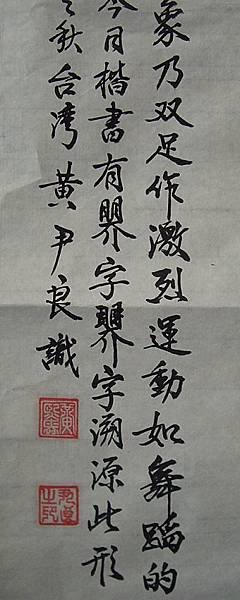 象乃双足作激烈運動如舞蹈的
今日楷書有字字溯源此形
秋台湾黄尹良識
尹良之印